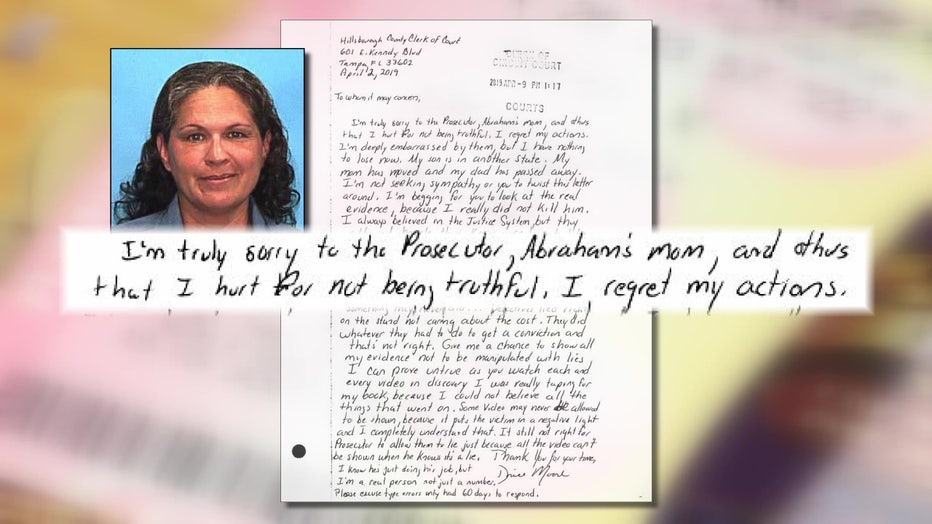 Hillsborough County Clerk of Court
601 E. Kennedy Blvd
Tampa, FL 33602
April 2, 2019
CIRCUIT COURT
2019 APR -9 PM 1:17
COURTS
To whom it may concern,
I'm truly sorry to the Prosecutor, Abraham's mom, and others
that I hurt for not being truthful. I regret my actions.
I'm deeply embarrassed by them, but I have nothing
to lose now. My son is in another state. My
mom has moved and my dad has passed away.
I'm not seeking sympathy or you to twist this letter
around. I'm begging for you to look at the real
evidence, because I really did not kill him.
I always believed in the Justice System, but they
I'm truly sorry to the Prosecutor, Abraham's mom, and others
that I hurt for not being truthful. I regret my actions.
on the stand not caring about the cost. They did
whatever they had to do to get a conviction and
that's not right. Give me a chance to show all
my evidence not to be manipulated with lies
I can prove untrue as you watch each and
every video in discovery I was really taping for
my book, because I could not believe all the
things that went on. Some Video may never be allowed
to be shown, because it puts the victim in a negative light
and I completely understand that. It still not right for
Prosecutor to allow them to lie just because all the video can't
be shown when he knows it's a lie. Thank you for your time,
I know he's just doing his job, but
I'm a real person not just a number.
Please excuse type errors only had 60 days to respond.